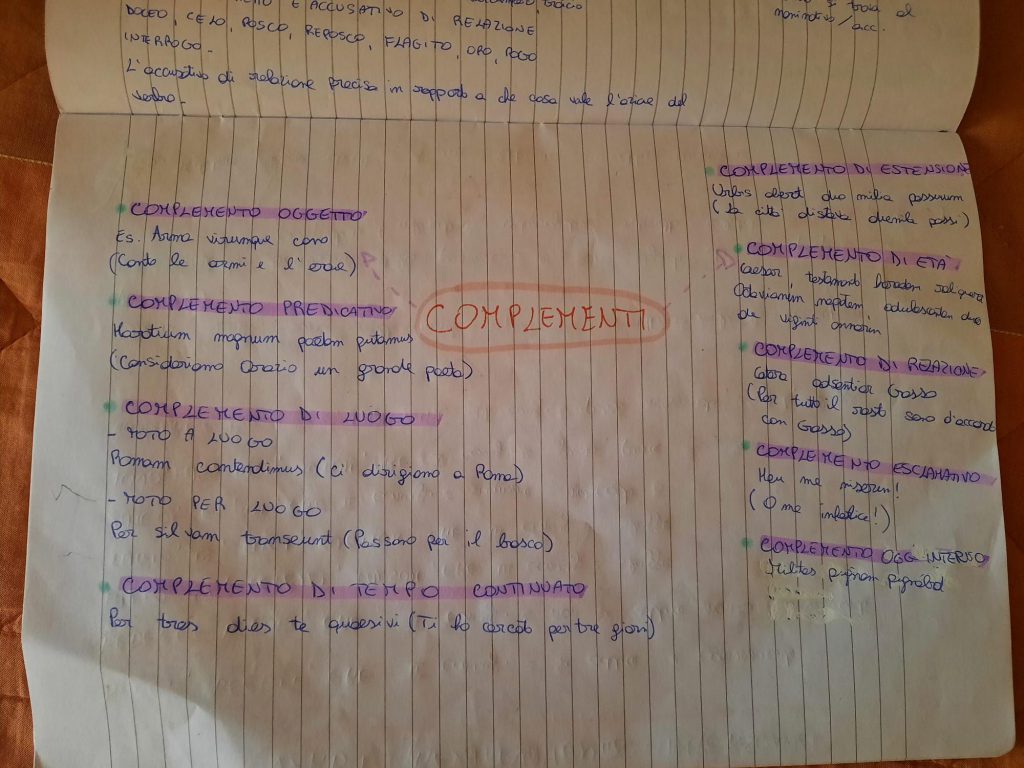 E ACCUSATIVO DI RELAZIONE
DOCEO, CELO, POSCO, REPOSCO, FLAGITO, ORO, ROGO
INTERROGO.
L'accusativo di relazione precisa in rapporto a che cosa vale l'azione del
verbo.
si trova al
nominativo/acc.
COMPLEMENTI
COMPLEMENTO OGGETTO
Es. Arma virumque cano
(Canto le armi e l'eroe)
COMPLEMENTO PREDICATIVO
Horatium magnum poetam putamus
(Consideriamo Orazio un grande poeta)
COMPLEMENTO DI LUOGO
- MOTO A LUOGO
Romam contendimus (ci dirigiamo a Roma)
- MOTO PER LUOGO
Per silvam transeunt (Passano per il bosco)
COMPLEMENTO DI TEMPO CONTINUATO
Per tres dies te quaesivi (Ti ho cercato per tre giorni)
COMPLEMENTO DI ESTENSIONE
Urbs aberat duo milia passuum
(La città distava duemila passi)
COMPLEMENTO DI ETÀ
Caesar, testamento heredem
Octavianum nepotem, adulescentem duo
de viginti annorum
COMPLEMENTO DI RELAZIONE
Cetera adsentior Crasso
(Per tutto il resto sono d'accordo
con Crasso)
COMPLEMENTO ESCLAMATIVO
Heu me miserum!
(O me infelice!)
COMPLEMENTO OGG. INTERNO
Milites pugnam pugnabat